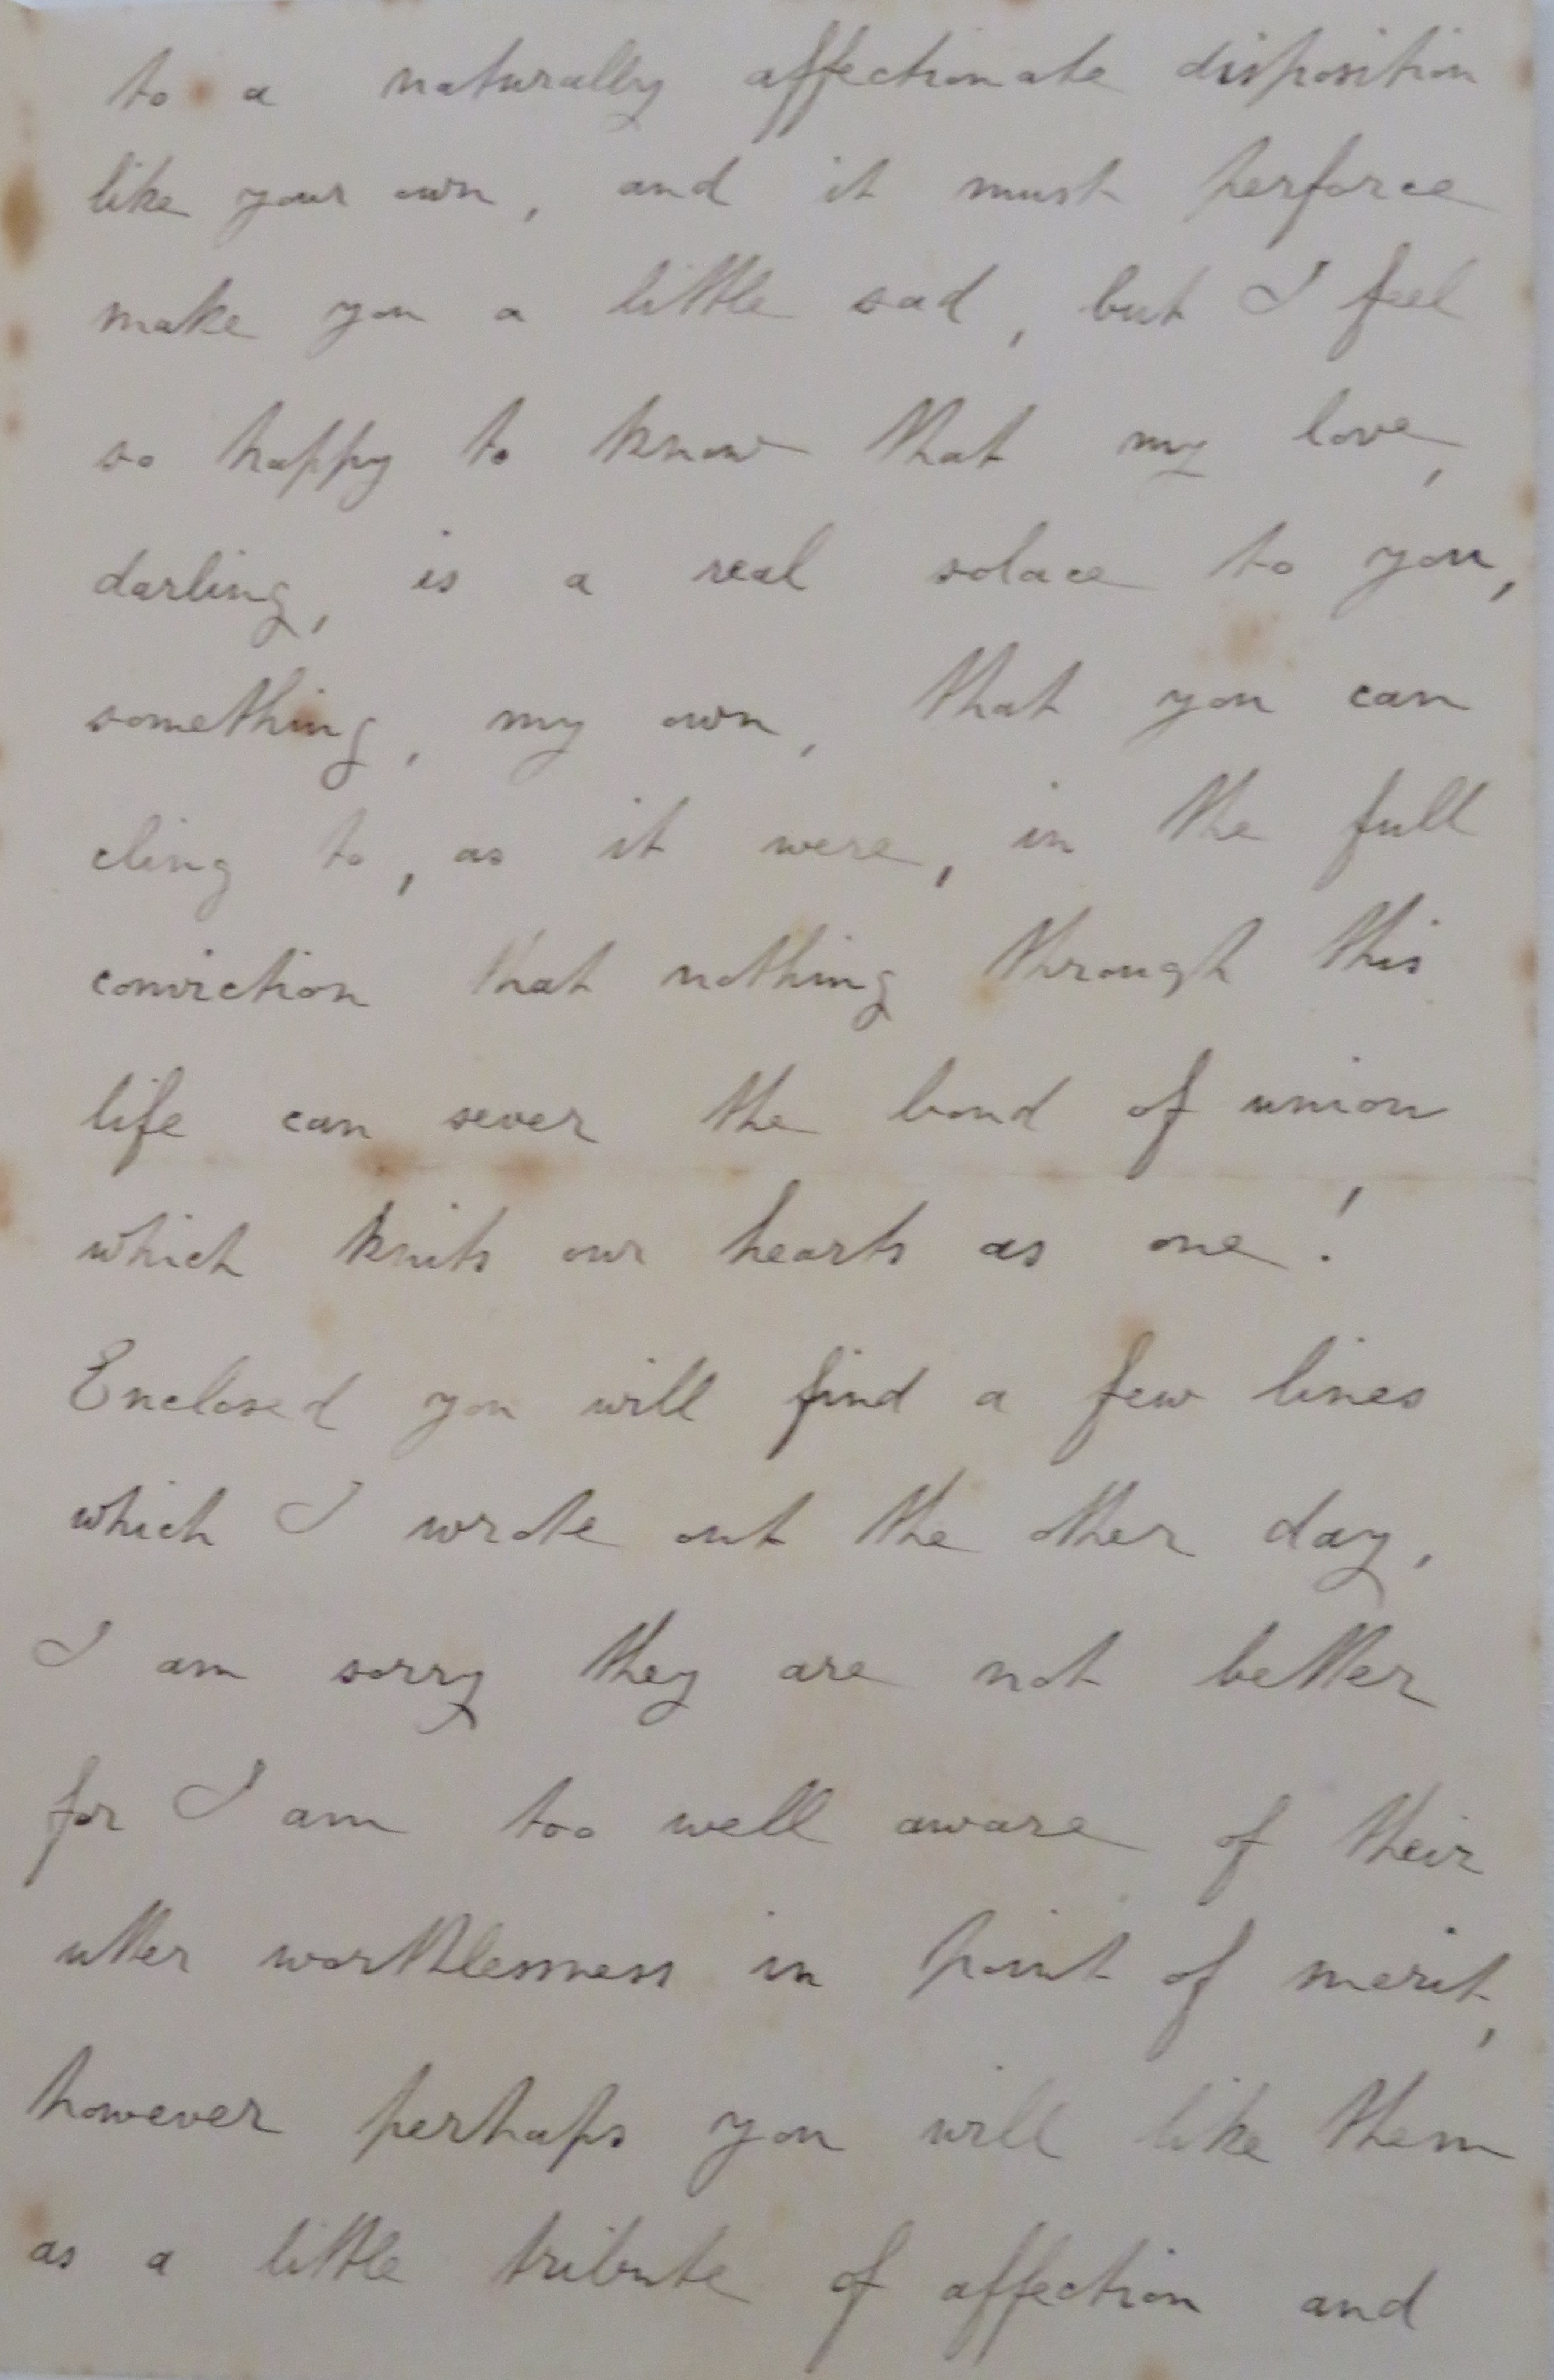 to a naturally affectionate disposition
like your own, and it must perforce
make you a little sad, but I feel
so happy to know that my love,
darling, is a real solace to you,
something, my own, that you can
cling to, as it were, in the full
conviction that nothing through this
life can sever the bond of union
which knits our hearts as one!
Enclosed you will find a few lines
which I wrote out the other day,
I am sorry they are not better
for I am too well aware of their
utter worthlessness in point of merit,
however perhaps you will like them
as a little tribute of affection and